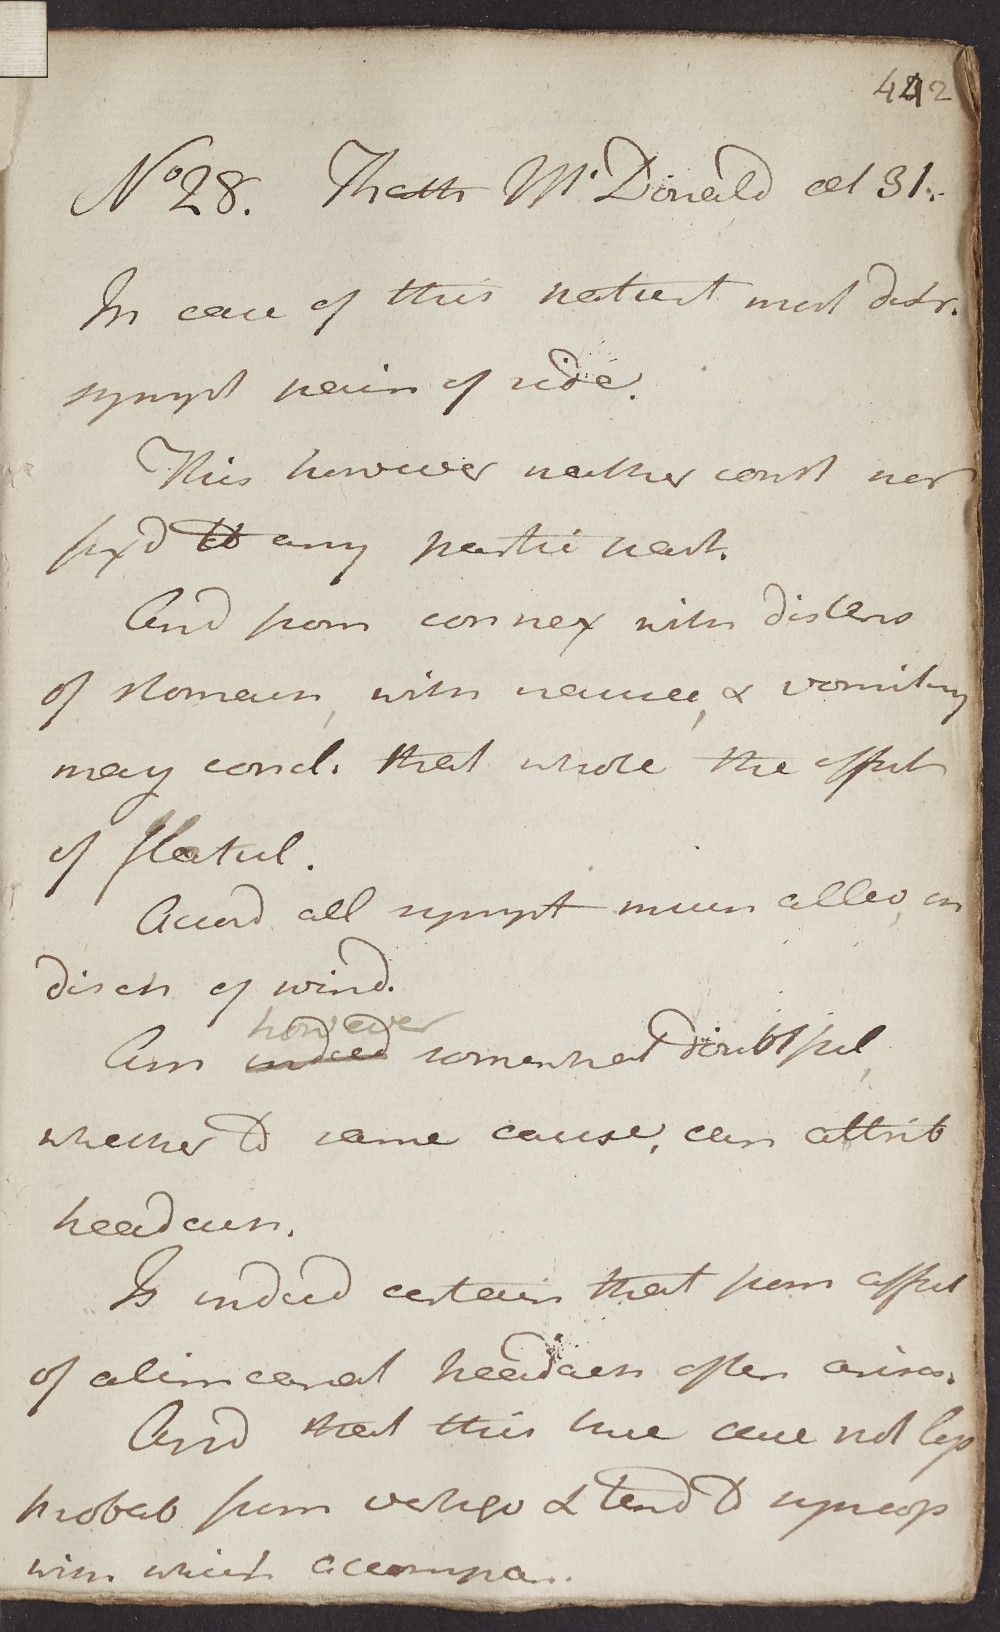 442
No 28. M.Donald aet 31.
In case of this patient most distr.
sympt pain of side.
This however neither const nor
fixd to any partic part.
And from connex with disteno
of stomach, with nausea, & vomiting
may concl. that whole the effect
of flatul.
Accord all sympt much allev, on
disch of wind.
however
Am indeed somewhat doubtful,
whether to same cause, can attrib
headach.
Is indeed certain that from affect
of alim canal headach often arises.
And that this true case not less
probab from vertigo & tend to syncop
with which accompan.